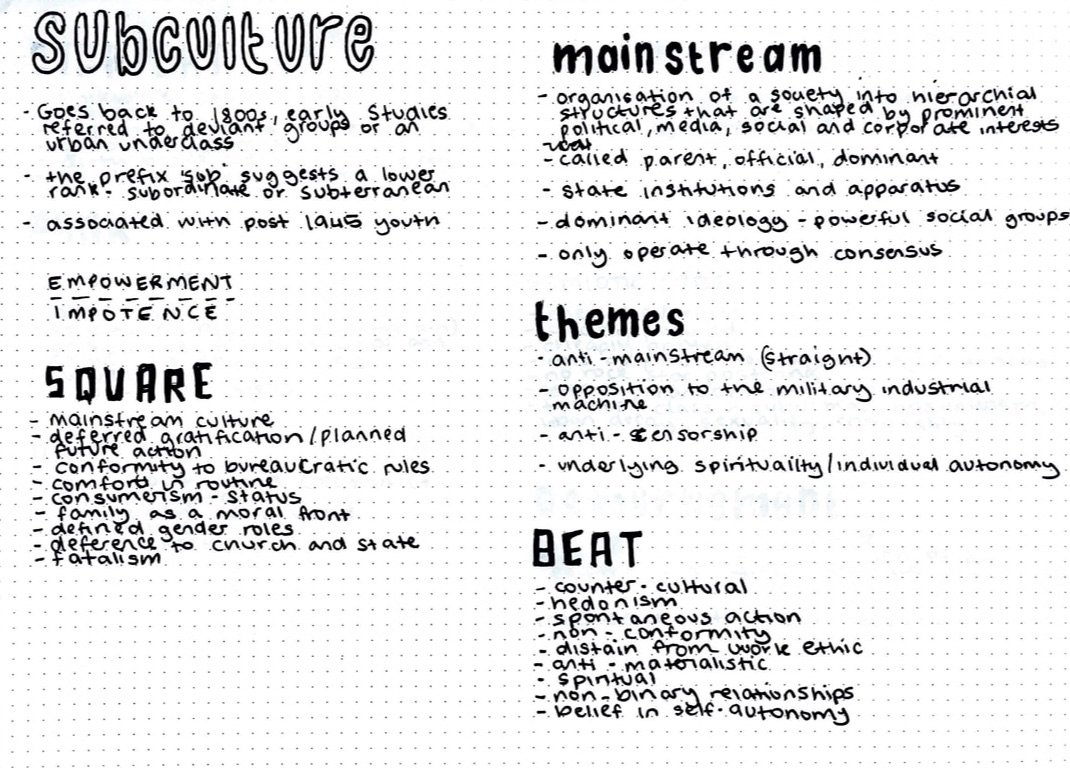 subculture
- Goes back to 1800s, early studies
referred to deviant groups or an
urban underclass
- the prefix 'sub' suggests a lower
rank - subordinate or subterranean
- associated with post 1945 youth
EMPOWERMENT
IMPOTENCE
SQUARE
- mainstream culture
- deferred gratification/planned
future action
- conformity to bureaucratic rules
- comfort in routine
- consumerism - status
- family as a moral front
- defined gender roles
- deference to church and state
- fatalism
mainstream
- organisation of a society into hierarchial
structures that are shaped by prominent
political, media, social and corporate interests
- called parent, official, dominant
- state institutions and apparatus
- dominant ideology - powerful social groups
- only operate through consensus
themes
- anti-mainstream (straight)
- opposition to the military industrial
machine
- anti-censorship
- underlying spirituailty/individual autonomy
BEAT
- counter-cultural
- hedonism
- spontaneous action
- non-conformity
- distain from work ethic
- anti-materialistic
- spiritual
- non-binary relationships
- belief in self-autonomy